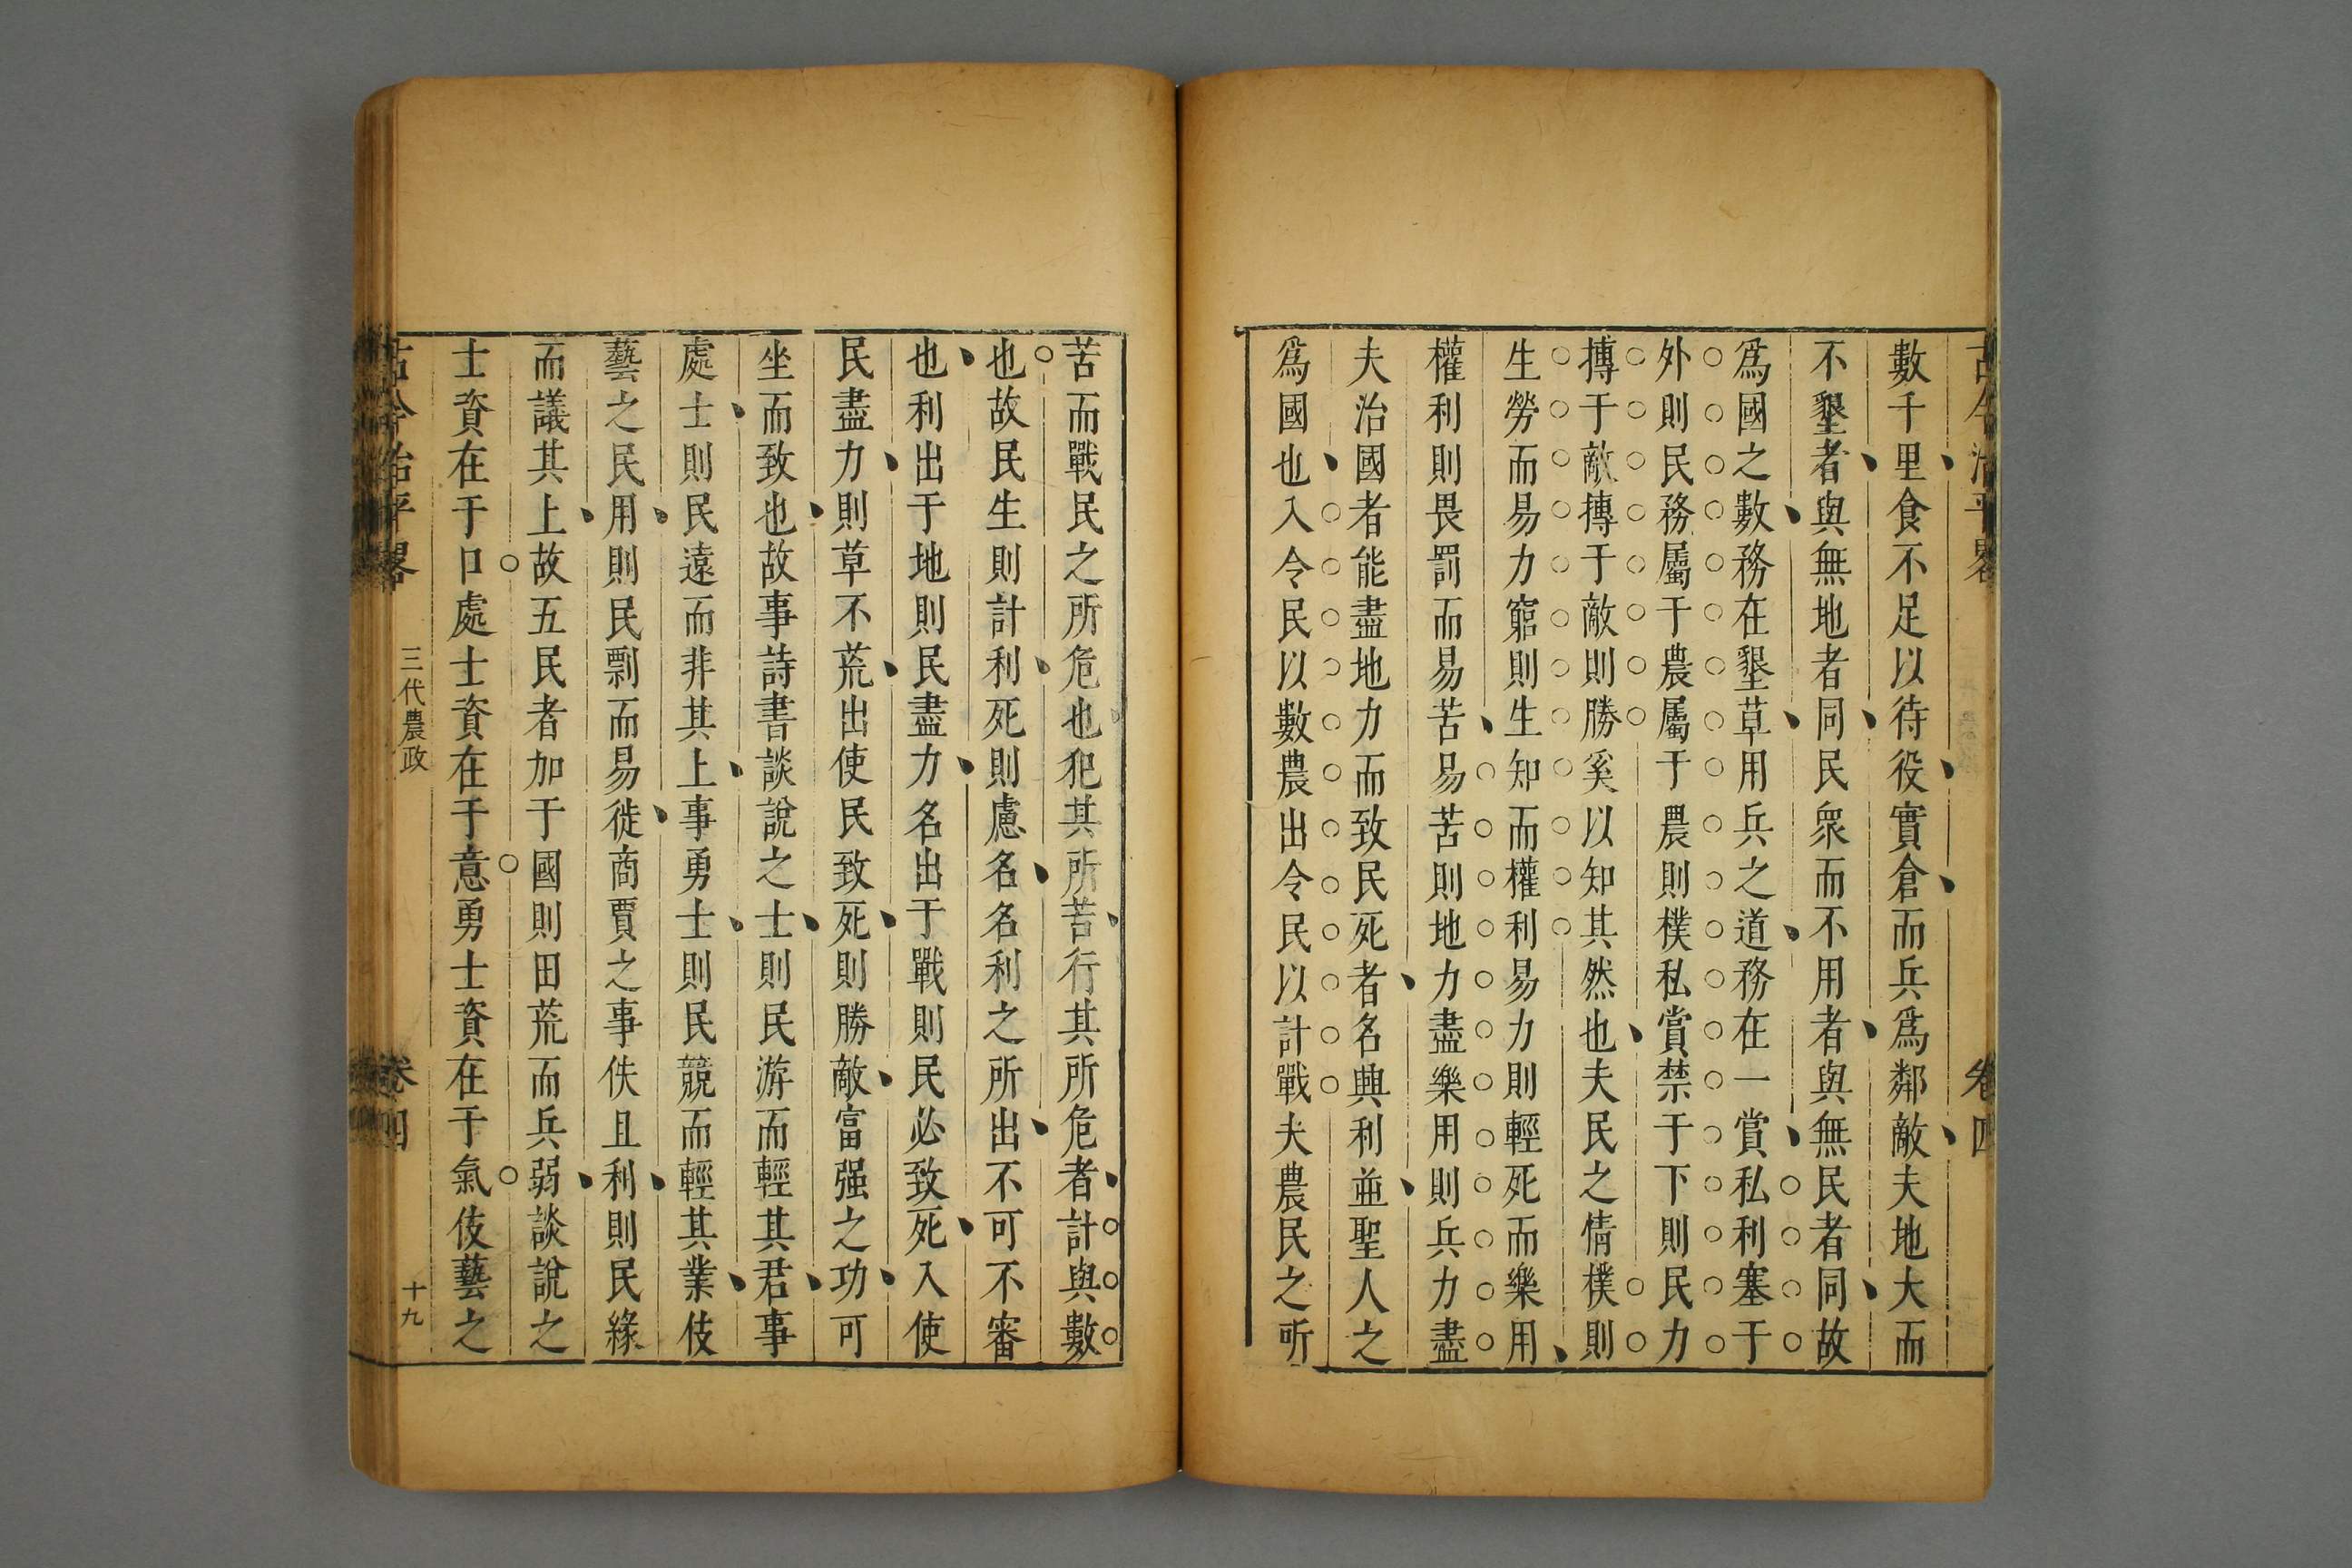 古今治平畧 卷四
數千里食不足以待役實倉而兵爲鄰敵夫地大而
不墾者與無地者同民衆而不用者與無民者同故
爲國之數務在墾草用兵之道務在一賞私利塞于
外則民務屬于農屬于農則樸私賞禁于下則民力
摶于敵摶于敵則勝奚以知其然也夫民之情樸則
生勞而易力窮則生知而權利易力則輕死而樂用
權利則畏罰而易苦易苦則地力盡樂用則兵力盡
夫治國者能盡地力而致民死者名與利並聖人之
爲國也入令民以數農出令民以計戰夫農民之所
苦而戰民之所危也犯其所苦行其所危者計與數
也故民生則計利死則慮名名利之所出不可不審
也利出于地則民盡力名出于戰則民必致死入使
民盡力則草不荒出使民致死則勝敵富强之功可
坐而致也故事詩書談說之士則民游而輕其君事
處士則民遠而非其上事勇士則民競而輕其業伎
藝之民用則民剽而易徙商賈之事佚且利則民緣
而議其上故五民者加于國則田荒而兵弱談說之
士資在于口處士資在于意勇士資在于氣伎藝之
古今治平畧 三代農政 卷四 十九